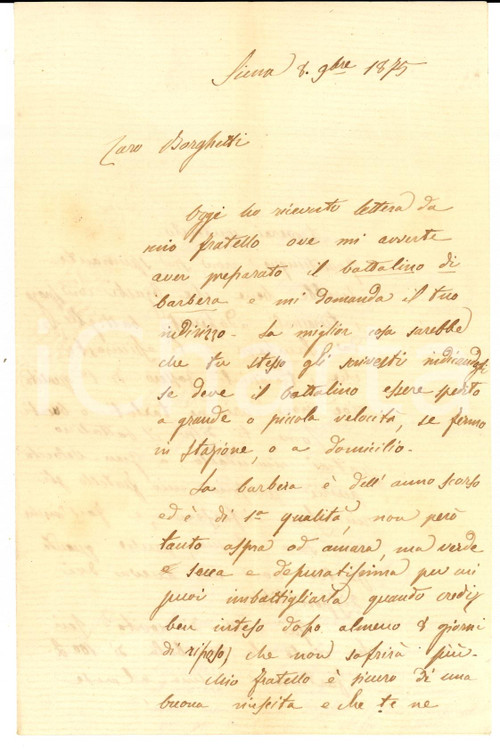 Siena 8. 9bre 1875
Caro Borghetti
Oggi ho ricevuto lettera da
mio fratello ove mi avverte
aver preparato il battalino di
barbera e mi domanda il tuo
indirizzo. La miglior cosa sarebbe
che tu stesso gli scrivesti indicandogli
se deve il battalino essere spedito
a grande o piccola velocità, se fermo
in stazione, o a domicilio.
La barbera è dell'anno scorso
ed è di 1a qualità, non però
tanto aspra od amara, ma verde
e secca e depuratissima per cui
puoi imbattigliarta quando credi
ben inteso dopo almeno 8 giorni
di riposo) che non soffrirà più.
Mio fratello è sicuro di una
buona riuscita e che te ne